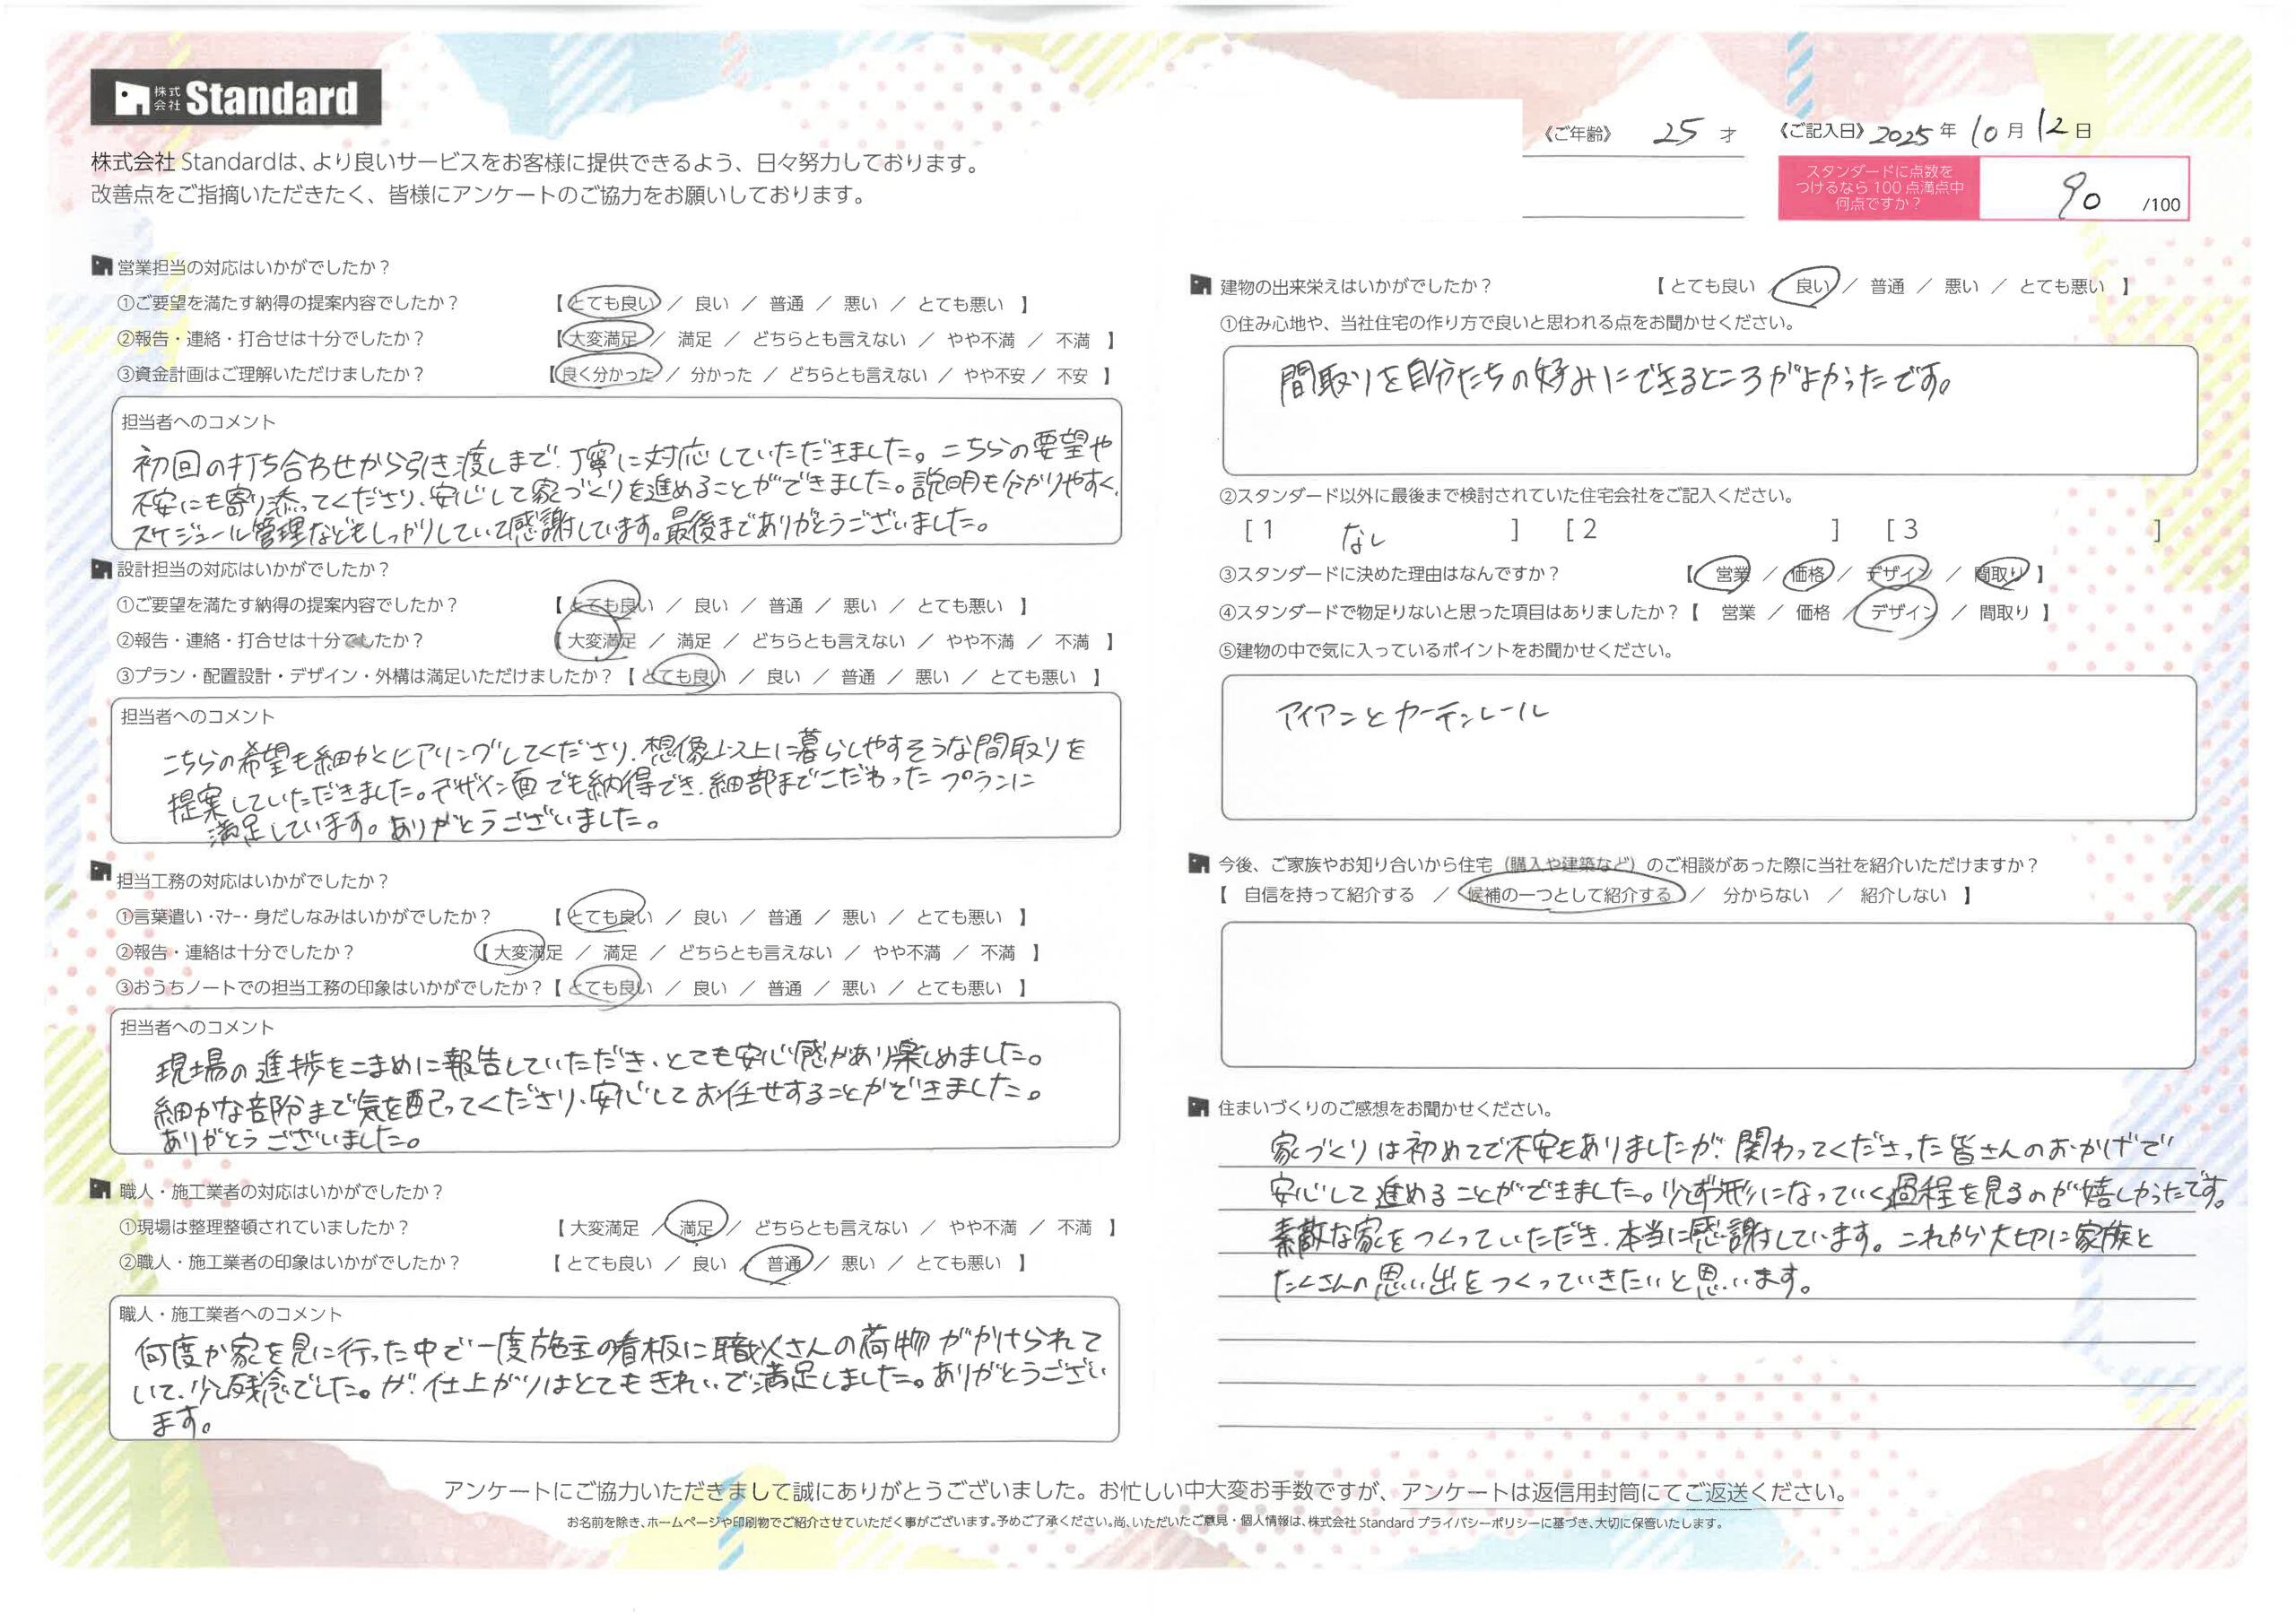 株式会社 Standard
株式会社 Standardは、より良いサービスをお客様に提供できるよう、日々努力しております。
改善点をご指摘いただきたく、皆様にアンケートのご協力をお願いしております。
《ご年齢》 25 才 《ご記入日》 2025 年 10 月 12 日
スタンダードに点数を
つけるなら 100 点満点中
何点ですか？
90 /100
営業担当の対応はいかがでしたか？
①ご要望を満たす納得の提案内容でしたか？ 【 とても良い ／ 良い ／ 普通 ／ 悪い ／ とても悪い 】
②報告・連絡・打合せは十分でしたか？ 【 大変満足 ／ 満足 ／ どちらとも言えない ／ やや不満 ／ 不満 】
③資金計画はご理解いただけましたか？ 【 良く分かった ／ 分かった ／ どちらとも言えない ／ やや不安 ／ 不安 】
担当者へのコメント
初回の打ち合わせから引き渡しまで、丁寧に対応していただきました。こちらの要望や
不安にも寄り添ってくださり、安心して家づくりを進めることができました。説明も分かりやすく、
スケジュール管理などもしっかりしていて感謝しています。最後までありがとうございました。
設計担当の対応はいかがでしたか？
①ご要望を満たす納得の提案内容でしたか？ 【 とても良い ／ 良い ／ 普通 ／ 悪い ／ とても悪い 】
②報告・連絡・打合せは十分でしたか？ 【 大変満足 ／ 満足 ／ どちらとも言えない ／ やや不満 ／ 不満 】
③プラン・配置設計・デザイン・外構は満足いただけましたか？ 【 とても良い ／ 良い ／ 普通 ／ 悪い ／ とても悪い 】
担当者へのコメント
こちらの希望も細かくヒアリングしてくださり、想像以上に暮らしやすそうな間取りを
提案していただきました。デザイン面でも納得でき、細部までこだわったプランに
満足しています。ありがとうございました。
担当工務の対応はいかがでしたか？
①言葉遣い・マナー・身だしなみはいかがでしたか？ 【 とても良い ／ 良い ／ 普通 ／ 悪い ／ とても悪い 】
②報告・連絡は十分でしたか？ 【 大変満足 ／ 満足 ／ どちらとも言えない ／ やや不満 ／ 不満 】
③おうちノートでの担当工務の印象はいかがでしたか？ 【 とても良い ／ 良い ／ 普通 ／ 悪い ／ とても悪い 】
担当者へのコメント
現場の進捗をこまめに報告していただき、とても安心感があり楽しめました。
細かな部分まで気を配ってくださり、安心してお任せすることができました。
ありがとうございました。
職人・施工業者の対応はいかがでしたか？
①現場は整理整頓されていましたか？ 【 大変満足 ／ 満足 ／ どちらとも言えない ／ やや不満 ／ 不満 】
②職人・施工業者の印象はいかがでしたか？ 【 とても良い ／ 良い ／ 普通 ／ 悪い ／ とても悪い 】
職人・施工業者へのコメント
何度か家を見に行った中で一度施主の看板に職人さんの荷物がかけられて
いて、少し残念でした。が、仕上がりはとてもきれいで満足しました。ありがとうござい
ます。
建物の出来栄えはいかがでしたか？ 【 とても良い ／ 良い ／ 普通 ／ 悪い ／ とても悪い 】
①住み心地や、当社住宅の作り方で良いと思われる点をお聞かせください。
間取りを自分たちの好みにできるところがよかったです。
②スタンダード以外に最後まで検討されていた住宅会社をご記入ください。
[ 1 なし ] [ 2 ] [ 3 ]
③スタンダードに決めた理由はなんですか？ 【 営業 ／ 価格 ／ デザイン ／ 間取り 】
④スタンダードで物足りないと思った項目はありましたか？ 【 営業 ／ 価格 ／ デザイン ／ 間取り 】
⑤建物の中で気に入っているポイントをお聞かせください。
アイアンとカーテンレール
今後、ご家族やお知り合いから住宅（購入や建築など）のご相談があった際に当社を紹介いただけますか？
【 自信を持って紹介する ／ 候補の一つとして紹介する ／ 分からない ／ 紹介しない 】
住まいづくりのご感想をお聞かせください。
家づくりは初めてで不安もありましたが、関わってくださった皆さんのおかげで
安心して進めることができました。少しずつ形になっていく過程を見るのが嬉しかったです。
素敵な家をつくっていただき、本当に感謝しています。これから大切に家族と
たくさんの思い出をつくっていきたいと思います。
アンケートにご協力いただきまして誠にありがとうございました。お忙しい中大変お手数ですが、アンケートは返信用封筒にてご返送ください。
お名前を除き、ホームページや印刷物でご紹介させていただく事がございます。予めご了承ください。尚、いただいたご意見・個人情報は、株式会社 Standard プライバシーポリシーに基づき、大切に保管いたします。